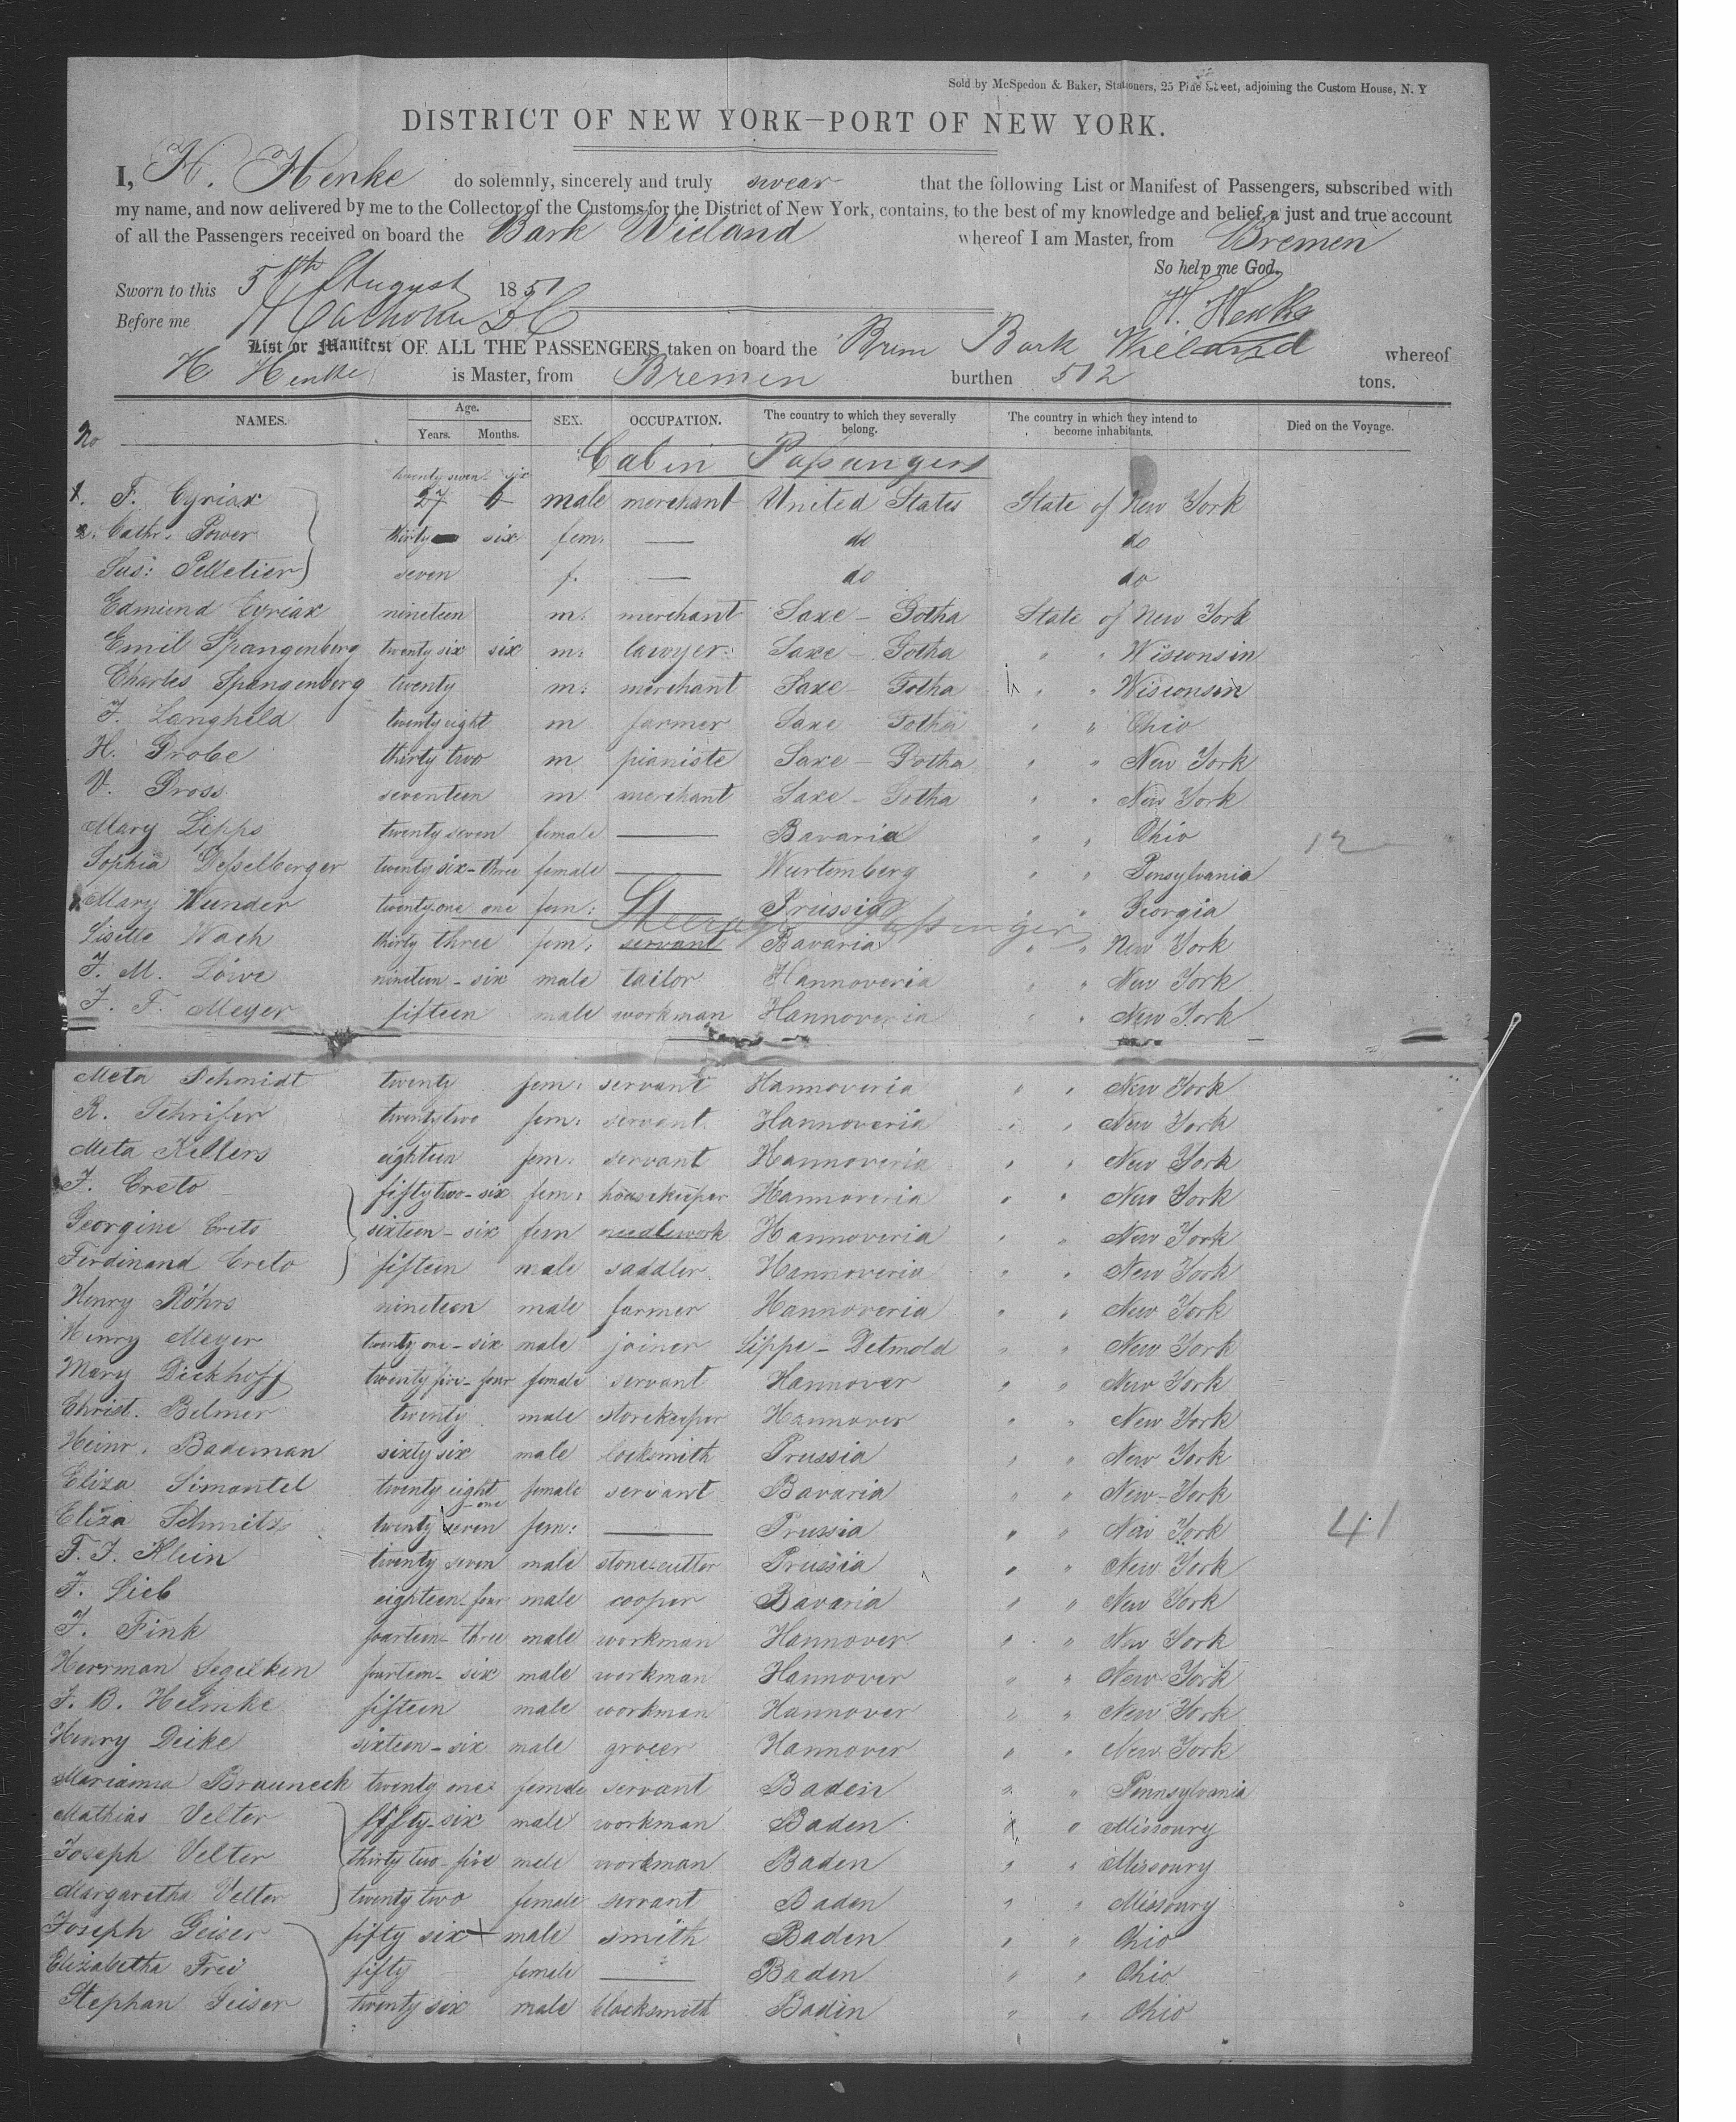 Sold by McSpedon & Baker, Stationers, 25 Pine Street, adjoining the Custom House, N. Y
DISTRICT OF NEW YORK—PORT OF NEW YORK.
I, H. Henke do solemnly, sincerely and truly swear that the following List or Manifest of Passengers, subscribed with
my name, and now delivered by me to the Collector of the Customs for the District of New York, contains, to the best of my knowledge and belief, a just and true account
of all the Passengers received on board the Bark Wieland whereof I am Master, from Bremen
So help me God.
Sworn to this 5th August 1851
H. Henke
Before me
List or Manifest OF ALL THE PASSENGERS taken on board the Brem Bark Wieland whereof
H Henke is Master, from Bremen burthen 512 tons.
No NAMES. Age. Years. Months. SEX. OCCUPATION. The country to which they severally belong. The country in which they intend to become inhabitants. Died on the Voyage.
Cabin Passengers
twenty seven six
1. F. Cyriax 27 6 male merchant United States State of New York
2. Cathr. Power thirty six fem: — do do
Sus: Pelletier seven f. — do do
Edmund Cyriax nineteen m: merchant Saxe - Gotha State of New York
Emil Spangenberg twenty six six m: lawyer: Saxe - Gotha " " Wisconsin
Charles Spangenberg twenty m: merchant Saxe Gotha " " Wisconsin
F. Langheld twenty eight m farmer Saxe Gotha " " Ohio
H. Grobe thirty two m pianiste Saxe - Gotha " " New York
V. Gross seventeen m merchant Saxe - Gotha " " New York
Mary Lipps twenty seven female — Bavaria " " Ohio 12
Sophia Desselberger twenty six - three female — Wurtemberg " " Pensylvania
Mary Wunder twenty one one fem: — Prussia " " Georgia
Steerage Passengers
Lisette Wach thirty three fem: servant Bavaria " " New York
J. M. Löwe nineteen - six male tailor Hannoveria " " New York
J. F. Meyer fifteen male workman Hannoveria " " New York
Meta Schmidt twenty fem: servant Hannoveria " " New York
R. twenty two fem: servant Hannoveria " " New York
Meta Kellers eighteen fem: servant Hannoveria " " New York
J. Creto fifty two - six fem: housekeeper Hannoveria " " New York
Georgine Creto sixteen - six fem needlework Hannoveria " " New York
Ferdinand Creto fifteen male saddler Hannoveria " " New York
Henry Röhrs nineteen male farmer Hannoveria " " New York
Henry Meyer twenty one - six male joiner Lippe - Detmold " " New York
Mary Dickhoff twenty five - four female servant Hannover " " New York
Christ. Belmer twenty male storekeeper Hannover " " New York
Heinr. Bademan sixty six male locksmith Prussia " " New York
Eliza Simantel twenty eight female servant Bavaria " " New-York
Eliza Schmitz twenty seven - one fem: — Prussia " " New York 41
F. J. Klein twenty seven male stone-cutter Prussia " " New York
J. Lieb eighteen - four male cooper Bavaria " " New York
J. Fink fourteen - three male workman Hannover " " New York
Herrman Segelken fourteen - six male workman Hannover " " New York
J. B. Helmke fifteen male workman Hannover " " New York
Henry Deike sixteen - six male grocer Hannover " " New York
Marianna Brauneck twenty one female servant Baden " " Pennsylvania
Mathias Velter fifty-six male workman Baden " " Missoury
Joseph Velter thirty two - five male workman Baden " " Missoury
Margaretha Velter twenty two female servant Baden " " Missoury
Joseph Geiser fifty six male smith Baden " " Ohio
Elizabetha Frei fifty female — Baden " " Ohio
Stephan Geiser twenty six male blacksmith Baden " " Ohio